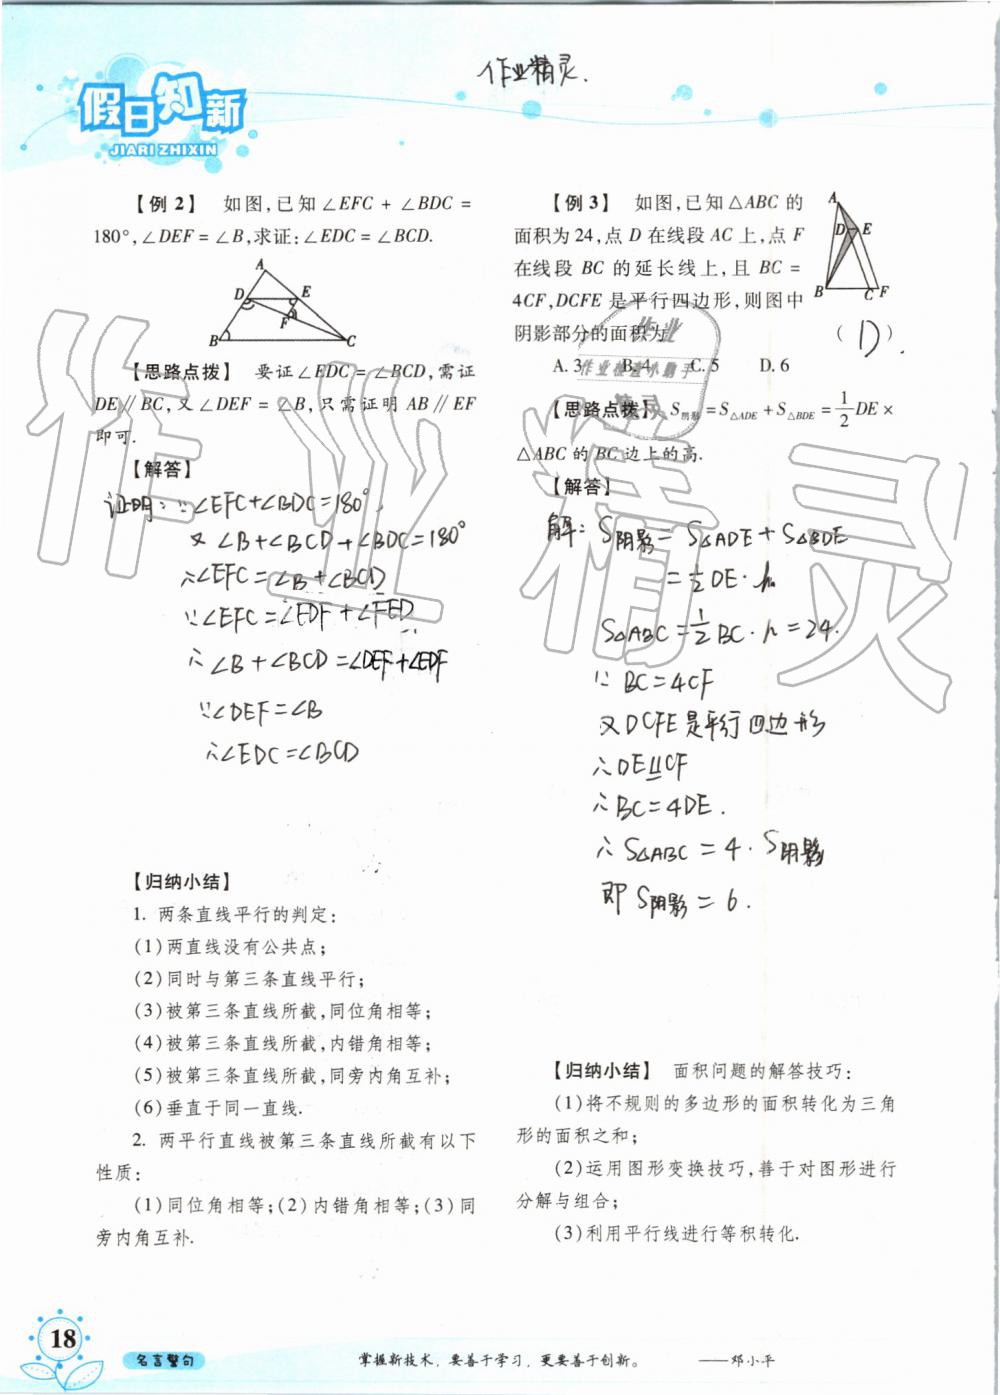 作业精灵.
假日知新
JIARI ZHIXIN
【例2】 如图,已知∠EFC + ∠BDC =
180°,∠DEF = ∠B,求证:∠EDC = ∠BCD.
A
D E
F
B C
【思路点拨】 要证∠EDC = ∠BCD,需证
DE∥BC,又∠DEF = ∠B,只需证明 AB∥EF
即可.
【解答】
证明:∵∠EFC+∠BDC=180°,
又∠B+∠BCD+∠BDC=180°
∴∠EFC=∠B+∠BCD
∵∠EFC=∠EDF+∠FED
∴∠B+∠BCD=∠DEF+∠EDF
∵∠DEF=∠B
∴∠EDC=∠BCD
【归纳小结】
1. 两条直线平行的判定:
(1)两直线没有公共点;
(2)同时与第三条直线平行;
(3)被第三条直线所截,同位角相等;
(4)被第三条直线所截,内错角相等;
(5)被第三条直线所截,同旁内角互补;
(6)垂直于同一直线.
2. 两平行直线被第三条直线所截有以下
性质:
(1)同位角相等;(2)内错角相等;(3)同
旁内角互补.
【例3】 如图,已知△ABC 的
面积为24,点 D 在线段 AC 上,点 F
在线段 BC 的延长线上,且 BC =
4CF,DCFE 是平行四边形,则图中
阴影部分的面积为 ( D )
A
D E
B C F
A. 3 B. 4 C. 5 D. 6
【思路点拨】 S阴影 = S△ADE + S△BDE = 1/2 DE ×
△ABC 的 BC 边上的高.
【解答】
解:S阴影 = S△ADE + S△BDE
= 1/2 DE · h
S△ABC = 1/2 BC · h = 24.
∵ BC=4CF
又DCFE是平行四边形
∴DE∥CF
∴BC=4DE.
∴S△ABC = 4 · S阴影
即 S阴影 = 6.
【归纳小结】 面积问题的解答技巧:
(1)将不规则的多边形的面积转化为三角
形的面积之和;
(2)运用图形变换技巧,善于对图形进行
分解与组合;
(3)利用平行线进行等积转化.
作业
作业检查小助手
精灵
作业精灵
18
名言警句
掌握新技术，要善于学习，更要善于创新。 ——邓小平